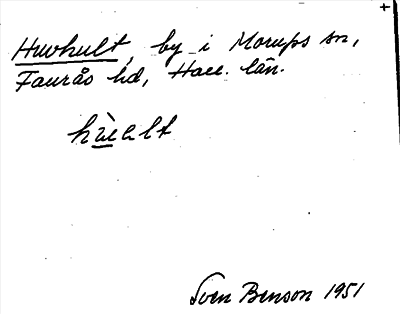 Huvhult, by i Morups sn,
Faurås hd, Hall. län.
Sven Benson 1951